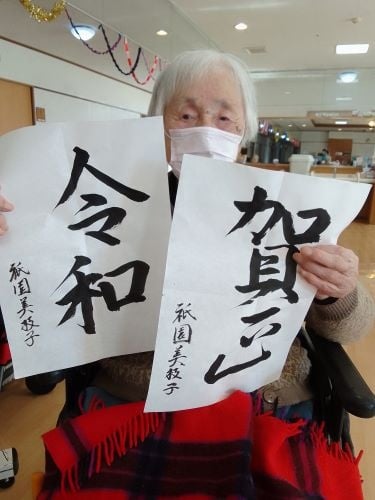 令和
祇園美枝子
賀正
祇園美枝子